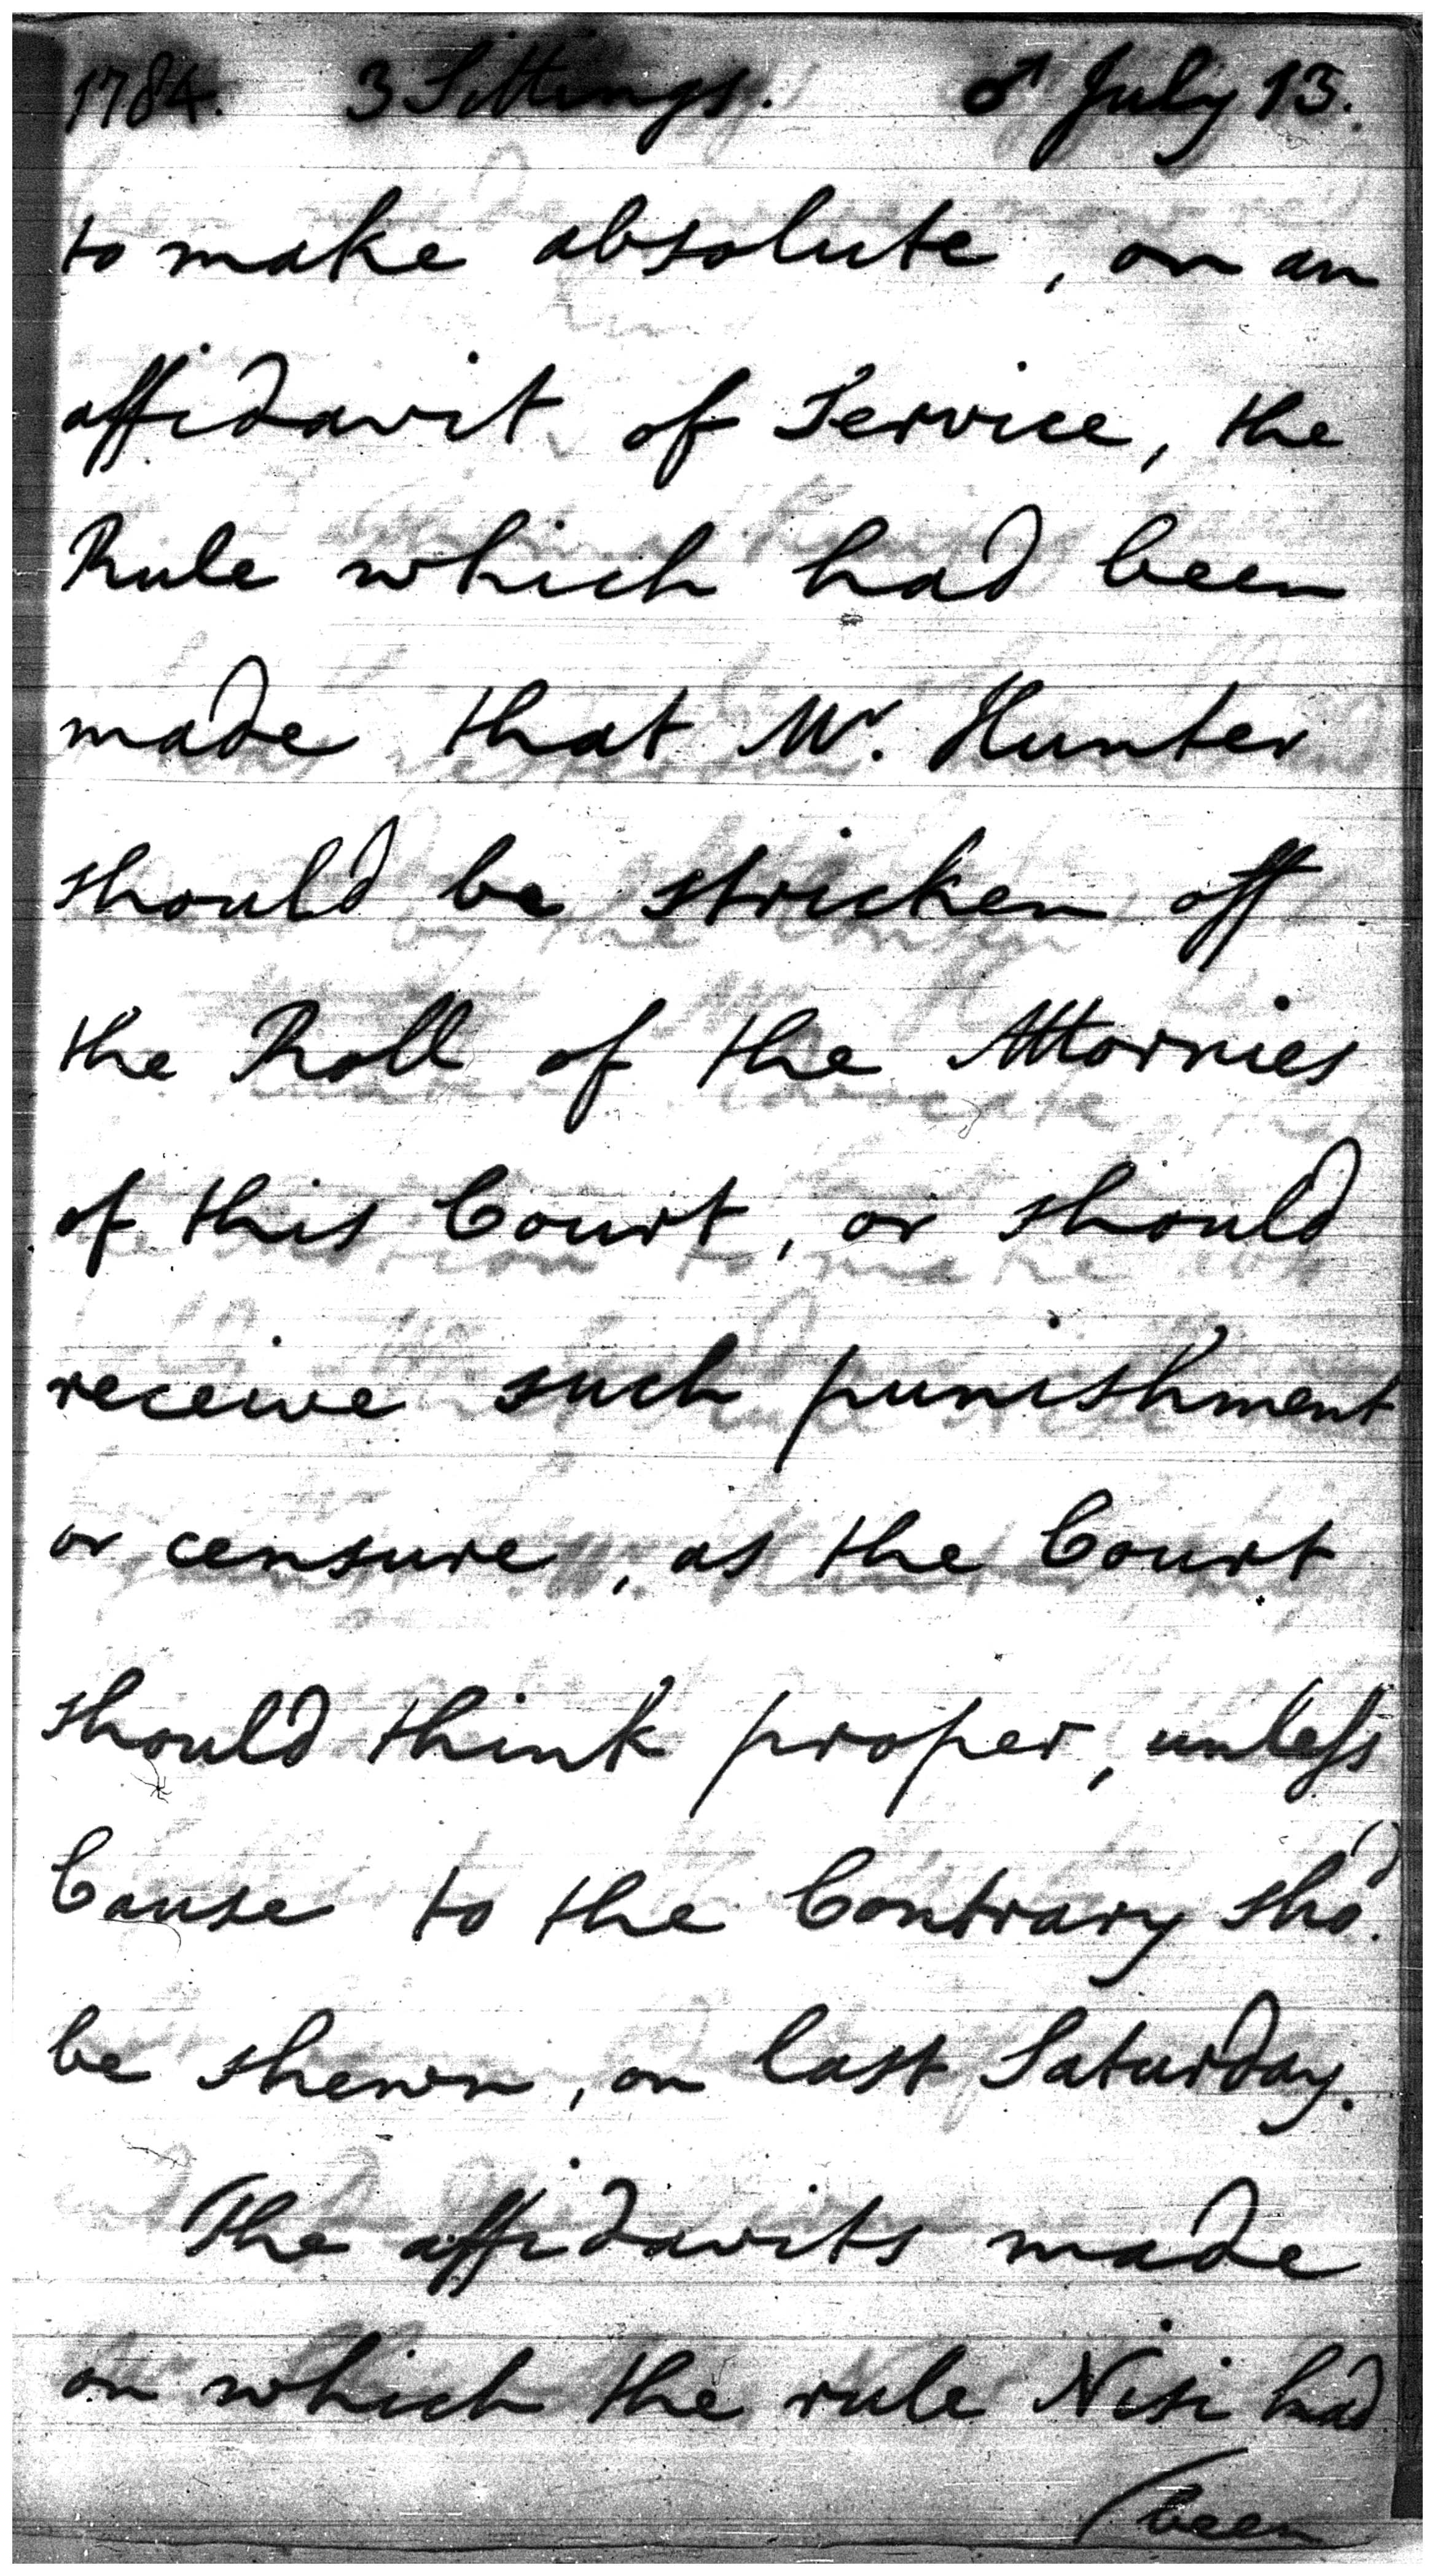 1784. 3 Sittings. ♂ July 13.
to make absolute, on an
affidavit of Service, the
Rule which had been
made that Mr. Hunter
should be stricken off
the Roll of the Attornies
of this Court, or should
receive such punishment
or censure, as the Court
should think proper, unless
Cause to the Contrary sho'd.
be shewn, on last Saturday.
The affidavits made
on which the rule Nisi had
(been